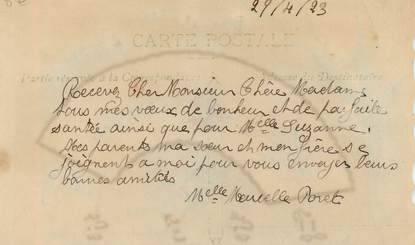 29/4/23
CARTE POSTALE
Recevez Cher Monsieur Chère Madame
tous mes vœux de bonheur et de parfaite
santé ainsi que pour Melle Suzanne.
Mes parents ma sœur et mon frère se
joignent a moi pour vous envoyer leurs
bonnes amitiés
Melle Marcelle